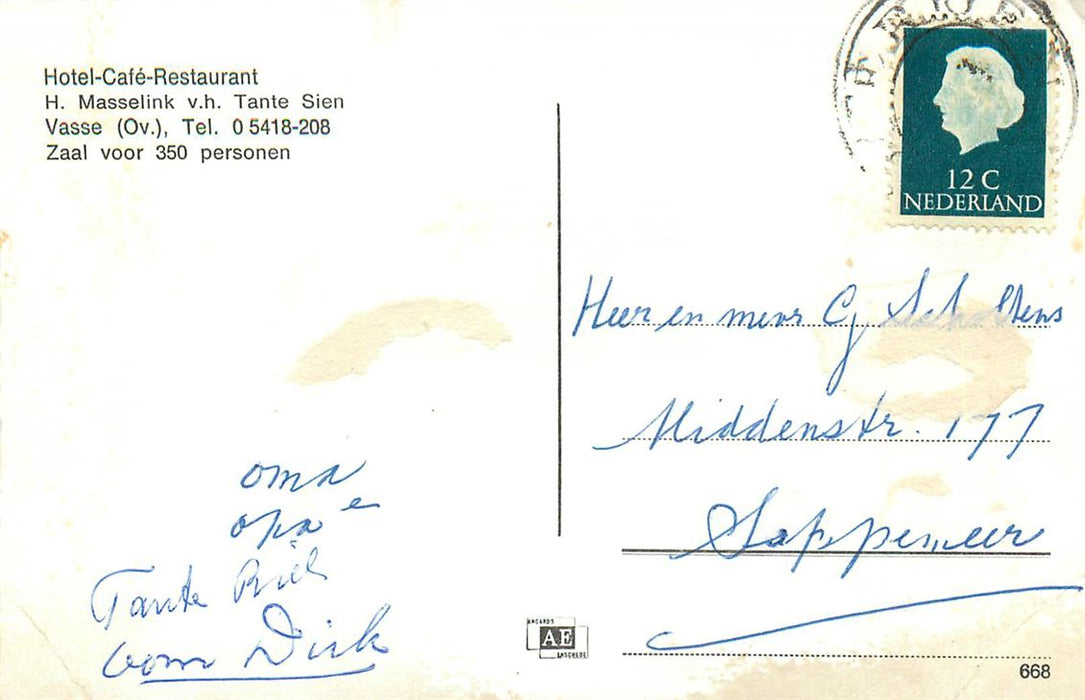 Hotel-Café-Restaurant
H. Masselink v.h. Tante Sien
Vasse (Ov.), Tel. 0 5418-208
Zaal voor 350 personen
12 C
NEDERLAND
Heer en mevr Cj Scholtens
Middenstr. 177
Sappemeer
oma
opa en
Tante Riek
oom Dirk
ANCARDS
AE
ENSCHEDE
668